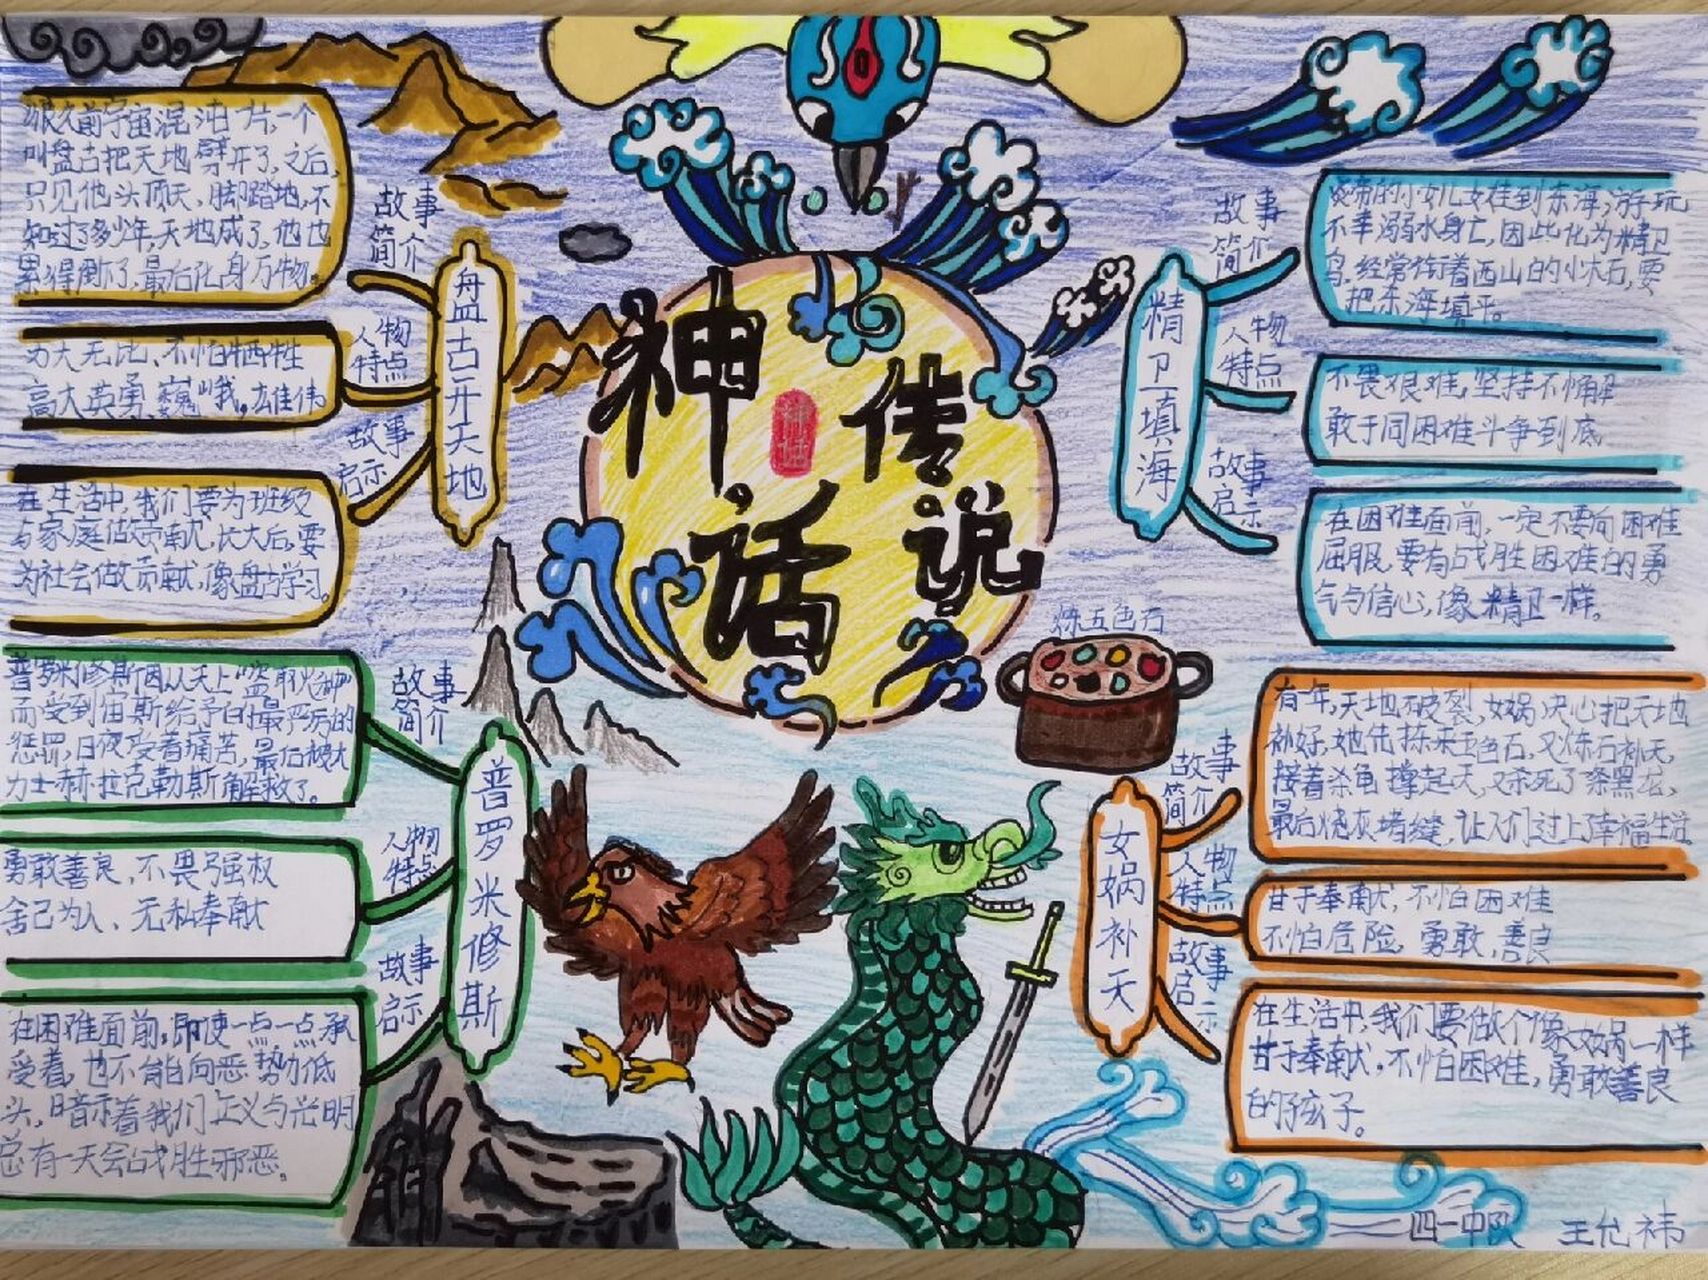 神话
传说
神话
盘古开天地
故事
简介
很久前宇宙混沌一片,一个
叫盘古把天地劈开了,之后,
只见他头顶天,脚踏地,不
知过了多少年,天地成了,他也
累得倒了,最后化身万物。
人物
特点
力大无比、不怕牺牲
高大英勇、巍峨,雄伟
故事
启示
在生活中,我们要为班级
与家庭做贡献,长大后,要
为社会做贡献,像盘古学习。
精卫填海
故事
简介
炎帝的小女儿女娃到东海,游玩
不幸溺水身亡,因此化为精卫
鸟,经常衔着西山的小木石,要
把东海填平。
人物
特点
不畏艰难,坚持不懈
敢于同困难斗争到底
故事
启示
在困难面前,一定不要向困难
屈服,要有战胜困难的勇
气与信心,像精卫一样。
普罗米修斯
故事
简介
普罗米修斯因从天上“盗取火种”
而受到宙斯给予的最严厉的
惩罚,日夜受着痛苦,最后被大
力士赫拉克勒斯解救了。
人物
特点
勇敢善良,不畏强权
舍己为人、无私奉献
故事
启示
在困难面前,即使一点一点承
受着,也不能向恶势力低
头,暗示着我们正义与光明
总有一天会战胜邪恶。
炼五色石
女娲补天
故事
简介
有一年,天地破裂,女娲决心把天地
补好,她先拣来五色石,又炼石补天,
接着杀龟撑起天,又杀死了条黑龙,
最后烧灰堵缝,让人们过上了幸福生活。
人物
特点
甘于奉献,不怕困难
不怕危险,勇敢,善良
故事
启示
在生活中,我们要做个像女娲一样
甘于奉献,不怕困难,勇敢善良
的孩子。
四一中队 王允祎